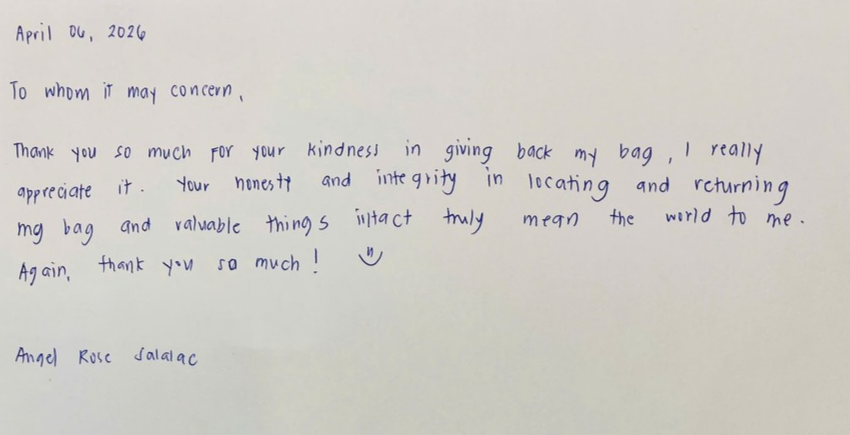 April 06, 2026
To whom it may concern,
Thank you so much for your kindness in giving back my bag, I really
appreciate it. Your honesty and integrity in locating and returning
my bag and valuable things intact truly mean the world to me.
Again, thank you so much!
Angel Rose Salalac